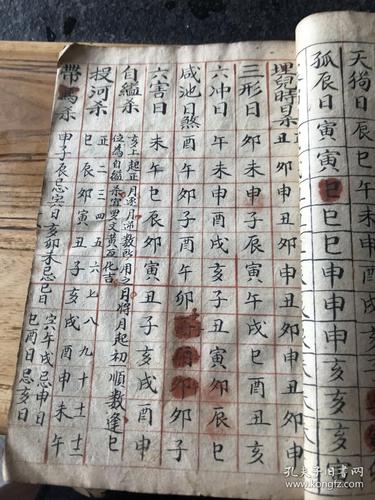 天狗日
孤辰日寅寅巳巳巳申申申亥亥亥
埋兒時日杀丑卯申丑卯申丑卯申丑卯申
三形日卯未申子辰寅午戌巳酉丑亥
六冲日午未申酉戌亥子丑寅卯辰巳
咸池日煞酉午卯子酉午卯卯子
六害日未午巳辰卯寅丑子亥戌酉申
自縊杀亥上起正月逐月逆数所用之月将月起初順数逢巳
位為自縊杀宜男文黄石化吉
投河杀正二三四五六七八九十十一十二
巳辰卯寅丑子戌酉申未午
帶馬杀
申子辰忌亥日亥卯未忌巳日
寅午戌忌申日
巳酉日忌亥日
孔夫子旧书网